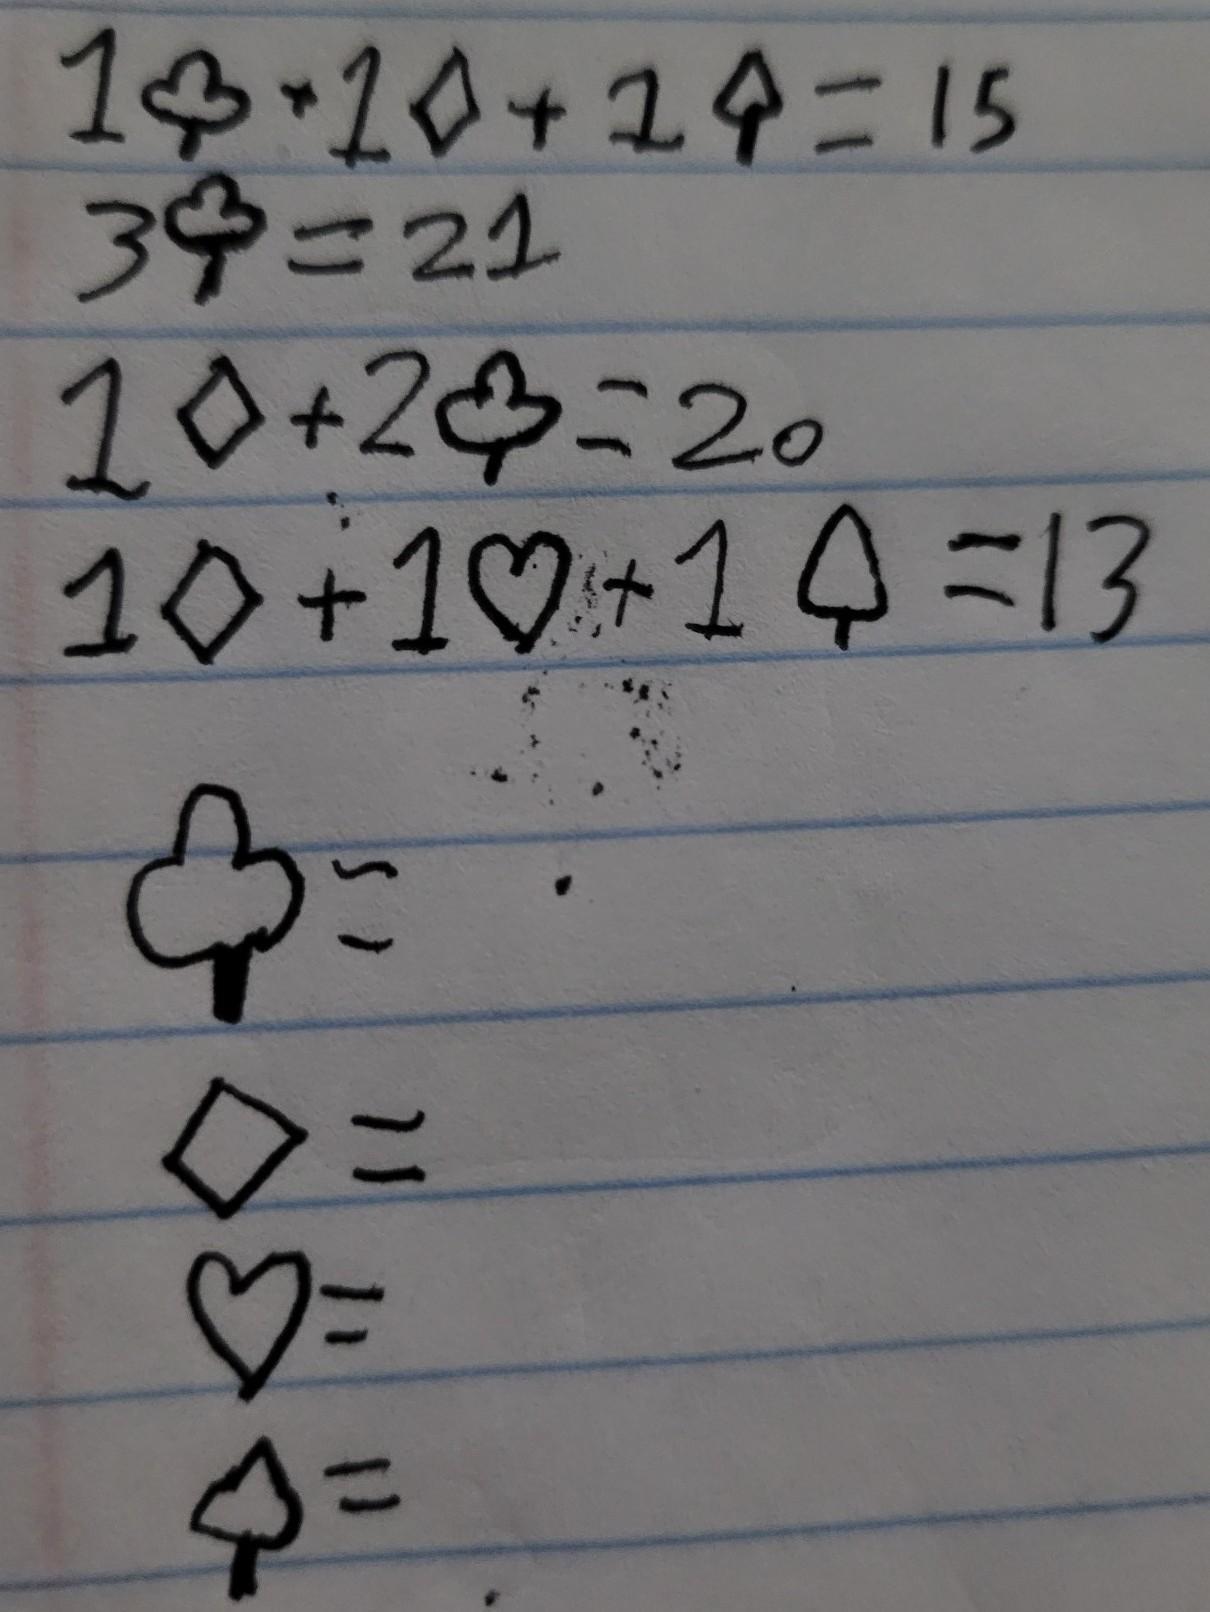 1♣+1♢+1♠=15
3♣=21
1♢+2♣=20
1♢+1♡+1♠=13
♣=
♢=
♡=
♠=